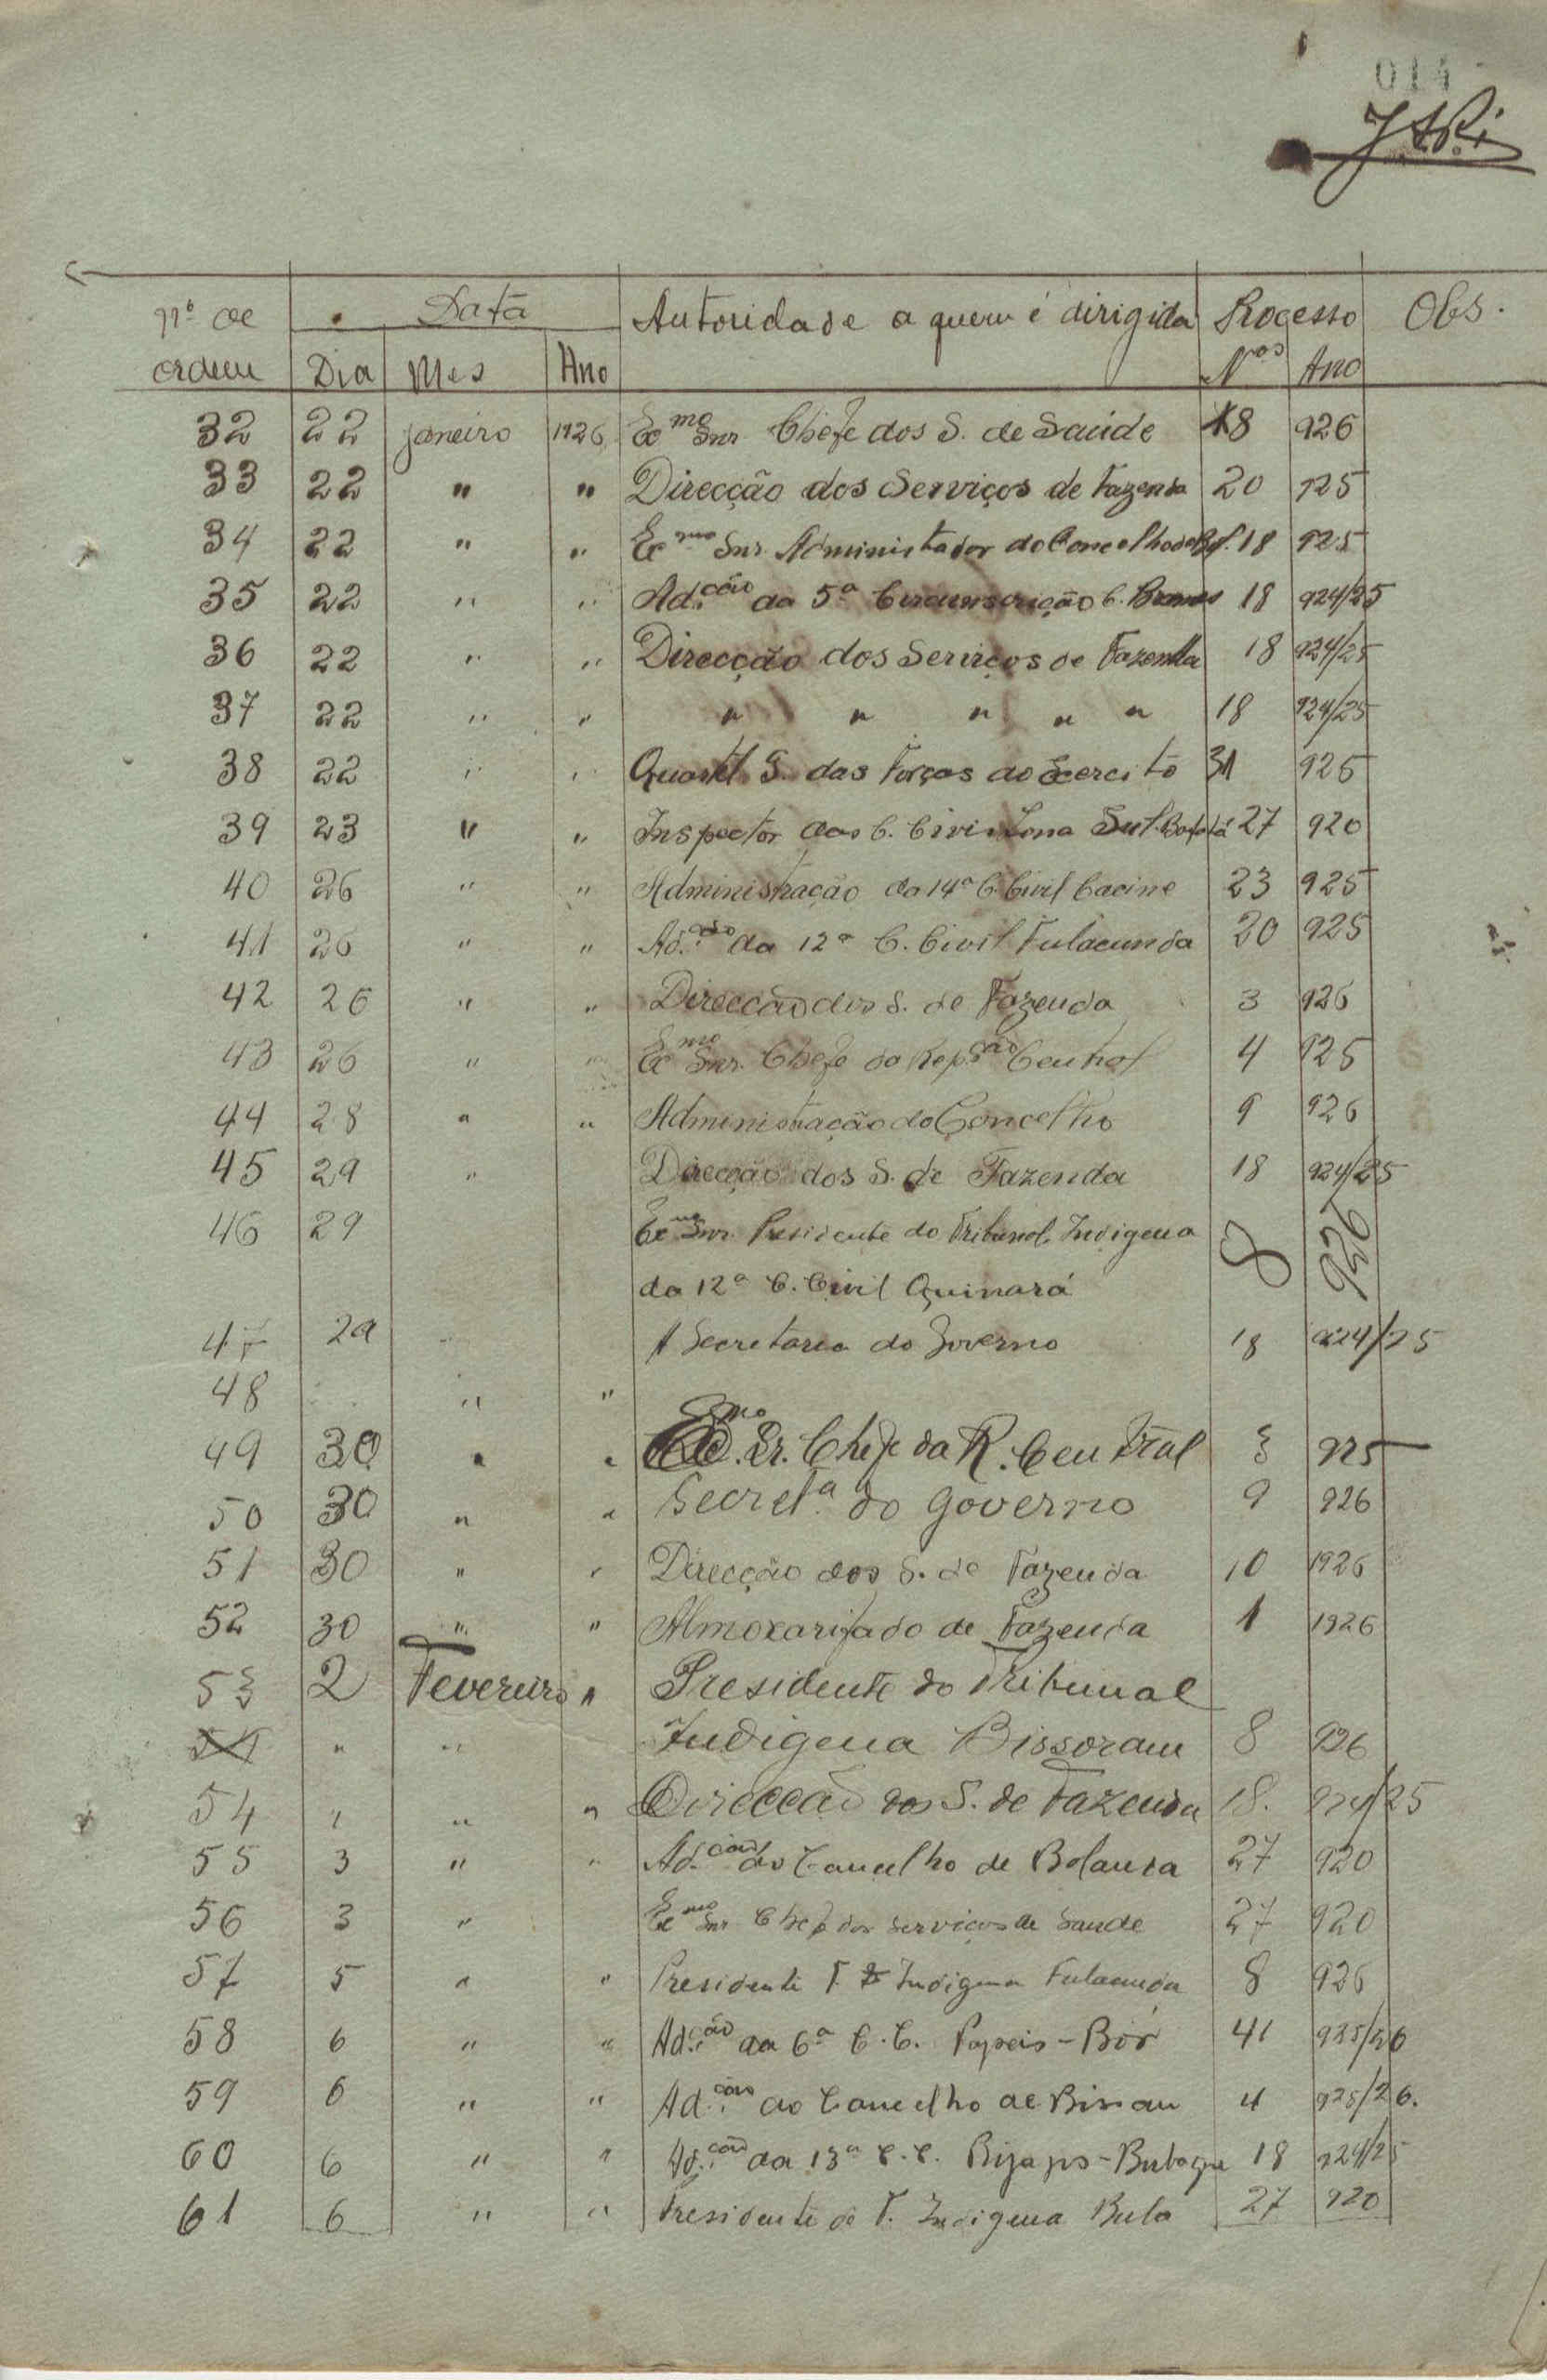 014
nº de Data Autoridade a quem é dirigida Processo Obs.
ordem Dia Mes Ano Nos Ano
32 22 Janeiro 1926 Exmo Snr. Chefe dos S. de Saúde 8 926
33 22 " " Direcção dos Serviços de Fazenda 20 925
34 22 " " Exmo Snr. Administador do Concelho de 18 925
35 22 " " Ad.ção da 5ª Circunscrição C. 18 924/25
36 22 " " Direcção dos Serviços de Fazenda 18 924/25
37 22 " " " " " " " 18 924/25
38 22 " " Quartel G. das Forças do Exercito 31 925
39 23 " " Inspector das C. Civis Zona Sul. Bafatá 27 920
40 26 " " Administração da 14ª C. Civil Cacine 23 925
41 26 " " Ad.ção da 12ª C. Civil Fulacunda 20 925
42 26 " " Direcção dos S. de Fazenda 3 926
43 26 " " Exmo Snr. Chefe da Rep.ção Central 4 925
44 28 " " Administração do Concelho 9 926
45 29 " Direcção dos S. de Fazenda 18 924/25
46 29 Exmo Snr. Presidente do Tribunal Indigena 8 926
da 12ª C. Civil Quinará
47 29 " A Secretaria do Governo 18 924/25
48 " "
49 30 " " Exmo. Sr. Chefe da R. Central 3 925
50 30 " " Secretª. do Governo 9 926
51 30 " " Direcção dos S. de Fazenda 10 1926
52 30 " " Almoxarifado de Fazenda 1 1926
53 2 Fevereiro " Presidente do Tribunal
" " Indigena Bissoram 8 926
54 " " " Direcção dos S. de Fazenda 18. 924/25
55 3 " " Ad.ção do Concelho de Bolama 27 920
56 3 " Exmo Snr Chefe dos Serviços de Saude 27 920
57 5 " " Presidente T. Indigena Fulacunda 8 926
58 6 " " Ad.ção da 6ª C. C. Papeis - Bór 41 925/26
59 6 " " Ad.ção do Concelho de Bissau 4 925/26.
60 6 " " Ad.ção da 13ª C. C. Bijagos - Bubaque 18 924/25
61 6 " " Presidente do T. Indigena Bula 27 920